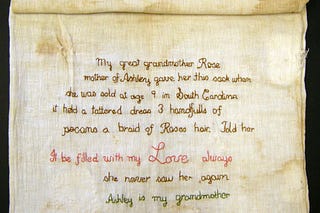 My great grandmother Rose
mother of Ashley gave her this sack when
she was sold at age 9 in South Carolina
it held a tattered dress 3 handfulls of
pecans a braid of Roses hair. Told her
It be filled with my Love always
she never saw her again
Ashley is my grandmother